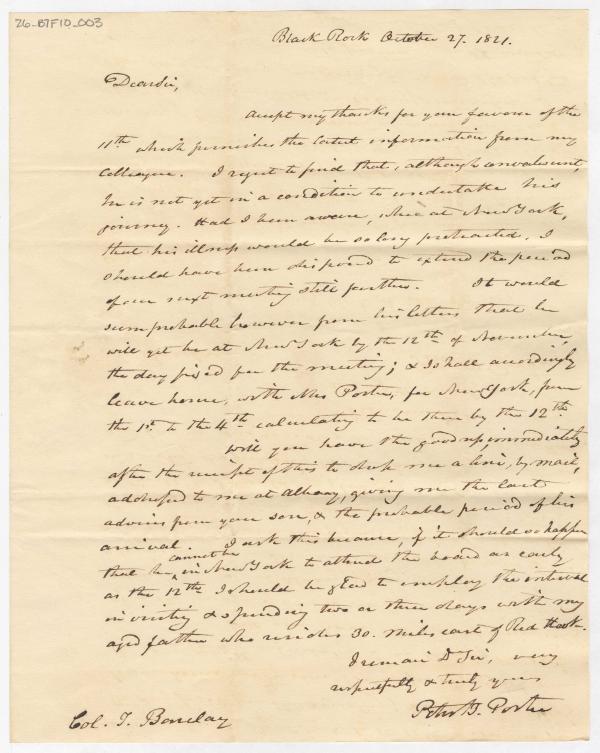 26-B7F10_003
Black Rock October 27. 1821.
Dear Sir,
Accept my thanks for your favour of the
11th which furnishes the latest information from my
Colleague. I regret to find that, although convalescent,
he is not yet in a condition to undertake his
journey. Had I been aware, when at New York,
that his illness would be so long protracted, I
should have been disposed to extend the period
of our next meeting still further. It would
seem probable however from his letters that he
will yet be at New York by the 12th of November,
the day fixed for the meeting; & I shall accordingly
leave home, with Mrs Porter, for New York, from
the 1st to the 4th calculating to be there by the 12th.
Will you have the goodness, immediately
after the receipt of this to drop me a line, by mail,
addressed to me at Albany, giving me the last
advices from your son, & the probable period of his
arrival. I ask this because, if it should so happen
that he cannot be in New York to attend the board as early
as the 12th I should be glad to employ the interval
in visiting & spending two or three days with my
aged father who resides 30. miles east of Red Hook.
I remain Dr Sir, very
respectfully & truly yours
Peter B. Porter
Col. T. Barclay